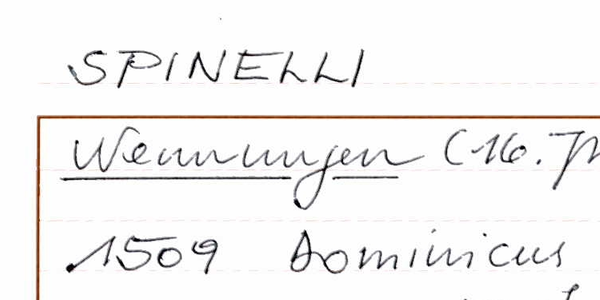 SPINELLI
Wennungen (16. Jh
1509 Dominicus